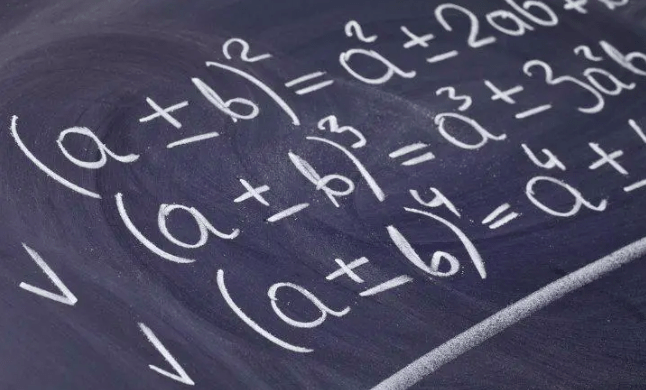 (a ± b)² = a² ± 2ab +
(a ± b)³ = a³ ± 3a²b
(a ± b)⁴ = a⁴ ±